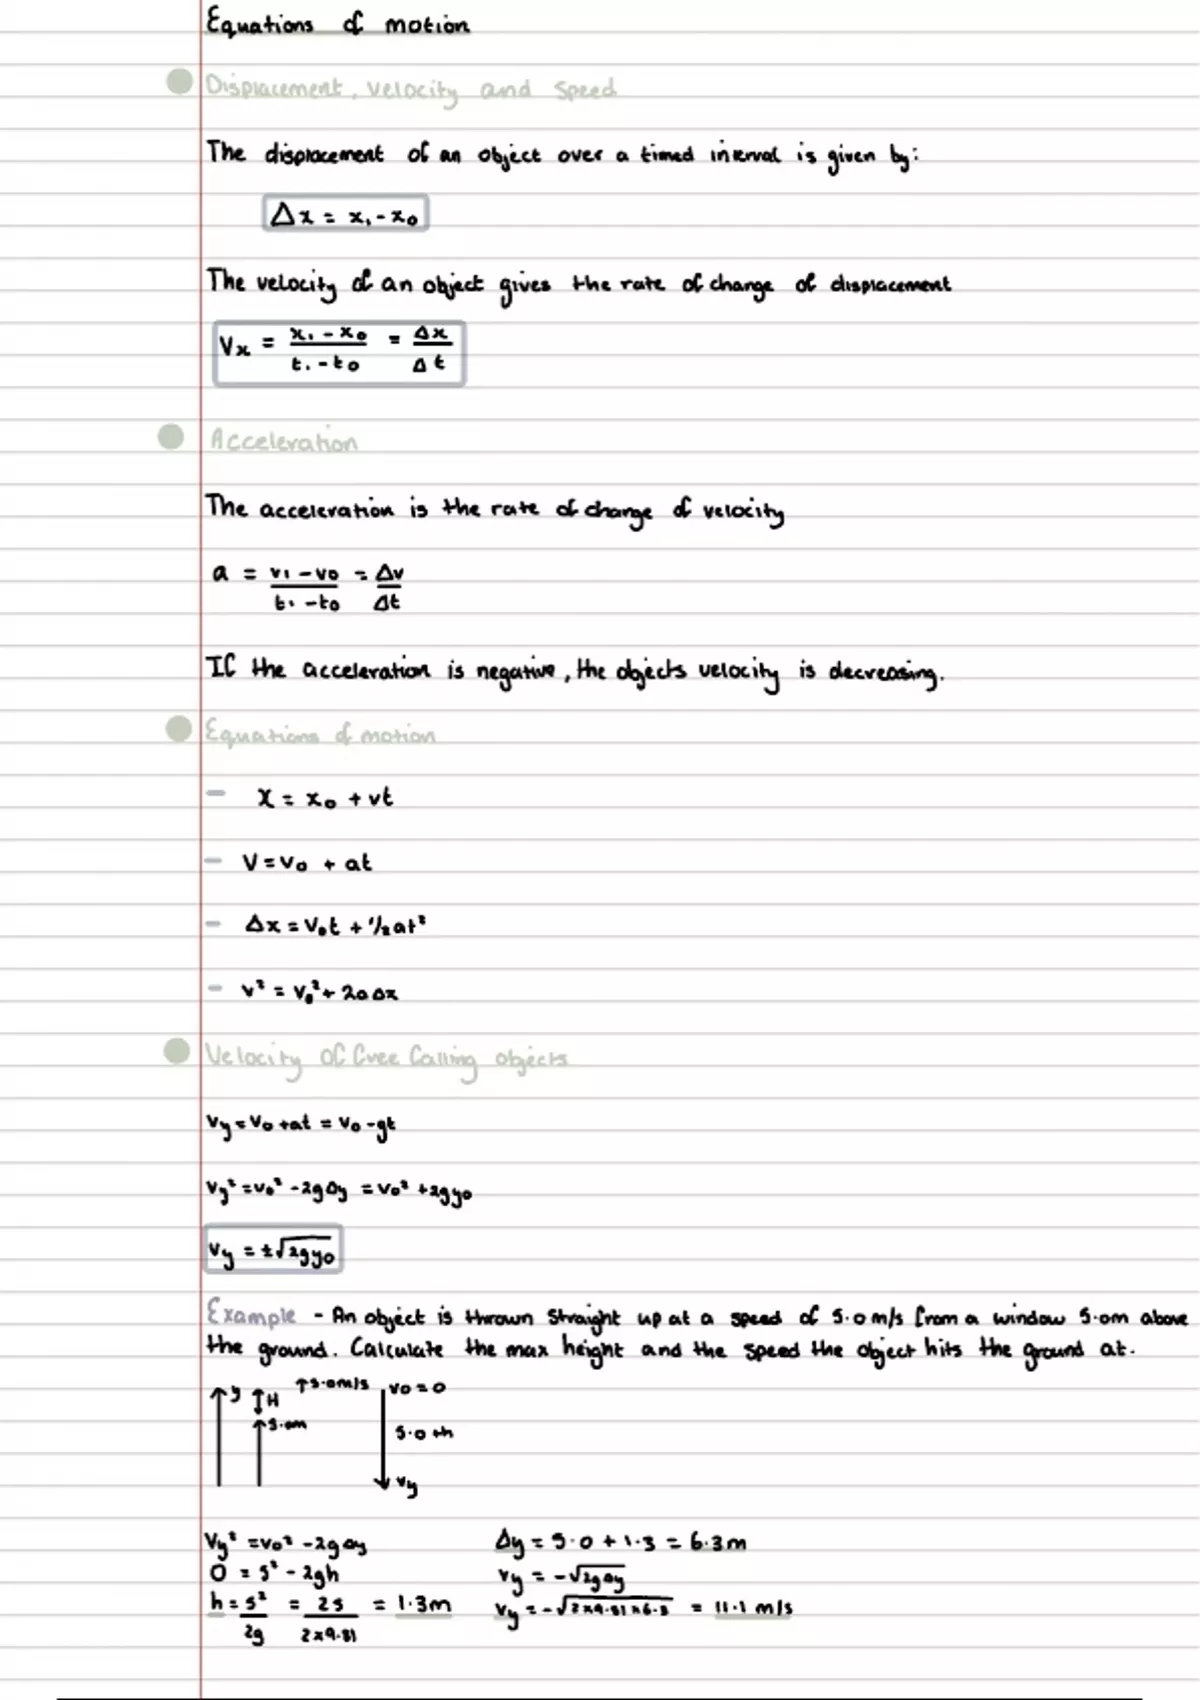 Equations of motion
Displacement, velocity and speed
The displacement of an object over a timed interval is given by:
Δx = x₁ - x₀
The velocity of an object gives the rate of change of displacement
Vx = x₁ - x₀ / t₁ - t₀ = Δx / Δt
Acceleration
The acceleration is the rate of change of velocity
a = v₁ - v₀ / t₁ - t₀ = Δv / Δt
If the acceleration is negative, the objects velocity is decreasing.
Equations of motion
- x = x₀ + vt
- V = V₀ + at
- Δx = V₀t + 1/2 at²
- v² = v₀² + 2aΔx
Velocity of free falling objects
Vy = V₀ + at = V₀ - gt
Vy² = v₀² - 2gΔy = v₀² + 2gy₀
Vy = ±√2gy₀
Example - An object is thrown straight up at a speed of 5.0 m/s from a window 5.0m above
the ground. Calculate the max height and the speed the object hits the ground at.
y H ↑5.0m/s v₀ = 0
5.0m 5.0 + h
vy
Vy² = v₀² - 2gΔy Δy = 5.0 + 1.3 = 6.3m
0 = 5² - 2gh vy = -√2gΔy
h = 5² / 2g = 25 / 2×9.81 = 1.3m vy = -√2×9.81×6.3 = 11.1 m/s